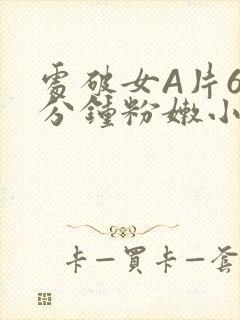 處破女A片6
分鐘粉嫩小
卡一買卡一套